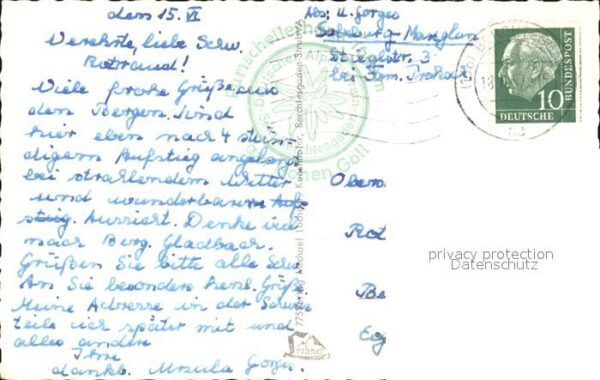 den 15. VI
Verehrte, liebe Schw.
Rotraud!
Viele frohe Grüße aus
den Bergen. Sind
hier eben nach 4 stün-
digem Aufstieg angelangt
bei strahlendem Wetter
und wunderbarer
Aussicht. Denke viel
nach Berg. Gladbach.
Grüßen Sie bitte alle Schw.
An Sie besonders herzl. Grüße
Meine Adresse in der Schweiz
teile ich später mit und
alles andere
Ihre
dankb. Ursula Gorges.
Abs: U. Gorges
Salzburg-Maxglan
Stieglstr. 3
bei Fam.
Obero
Rot
Be
Eg
Purtschellerhaus
Hohen Göll
Deutscher Alpenverein
Berchtesgaden
Michael Lochner, Kunstanstalt, Berchtesgaden-Strub
10
DEUTSCHE
BUNDESPOST
privacy protection
Datenschutz